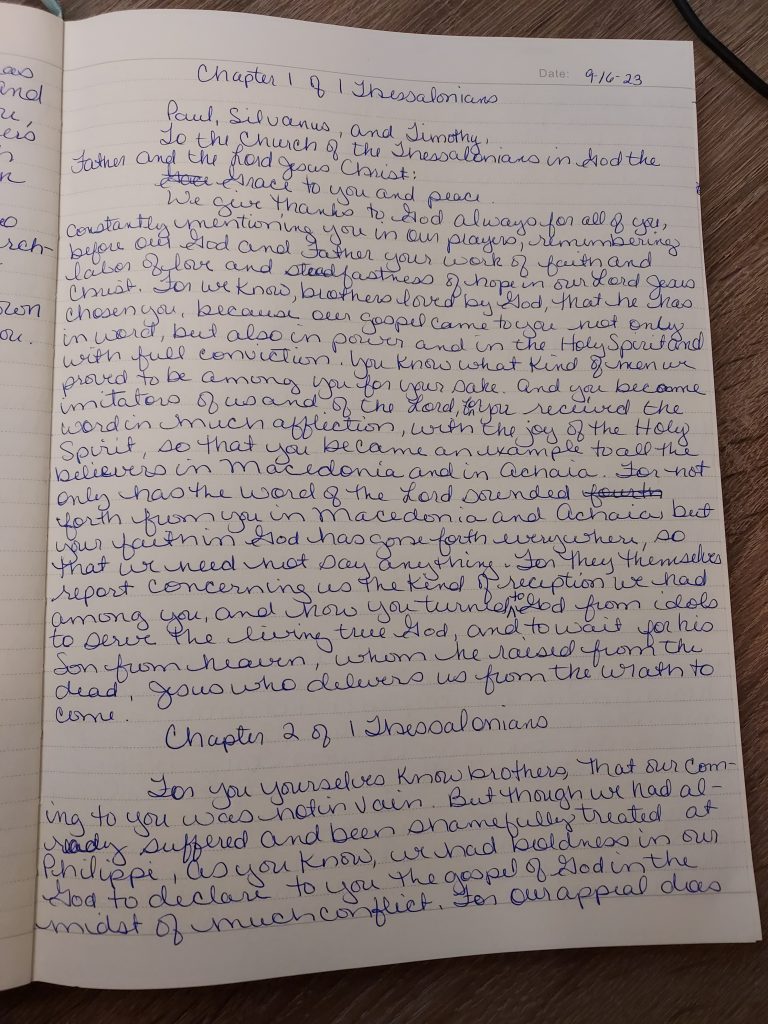 as
and
Date: 9-16-23
Chapter 1 of 1 Thessalonians
Paul, Silvanus, and Timothy,
To the Church of the Thessalonians in God the
Father and the Lord Jesus Christ:
Grace to you and peace.
We give thanks to God always for all of you,
constantly mentioning you in our prayers, remembering
before our God and Father your work of faith and
labor of love and steadfastness of hope in our Lord Jesus
Christ. For we know, brothers loved by God, that he has
chosen you, because our gospel came to you not only
in word, but also in power and in the Holy Spirit and
with full conviction. You know what kind of men we
proved to be among you for your sake. And you become
imitators of us and of the Lord, for you received the
word in much affliction, with the joy of the Holy
Spirit, so that you became an example to all the
believers in Macedonia and in Achaia. For not
only has the word of the Lord sounded fourth
forth from you in Macedonia and Achaia, but
your faith in God has gone forth everywhere, so
that we need not say anything. For they themselves
report concerning us the kind of reception we had
among you, and how you turned to God from idols
to serve the living true God, and to wait for his
Son from heaven, whom he raised from the
dead, Jesus who delivers us from the wrath to
come.
Chapter 2 of 1 Thessalonians
For you yourselves know brothers, that our com-
ing to you was not in vain. But though we had al-
ready suffered and been shamefully treated at
Philippi, as you know, we had boldness in our
God to declare to you the gospel of God in the
midst of much conflict. For our appeal does